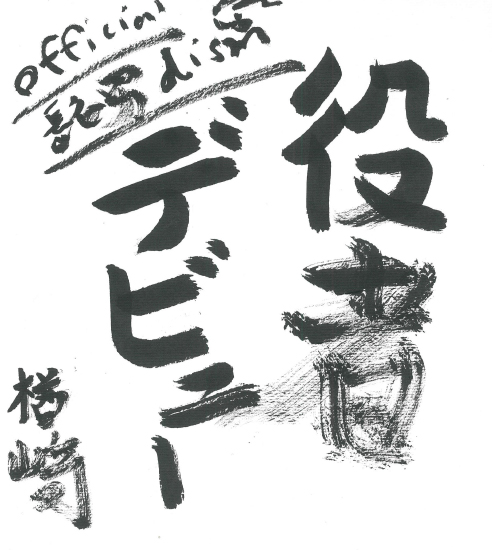 official
髭男dism
役者
デビュー
楢﨑